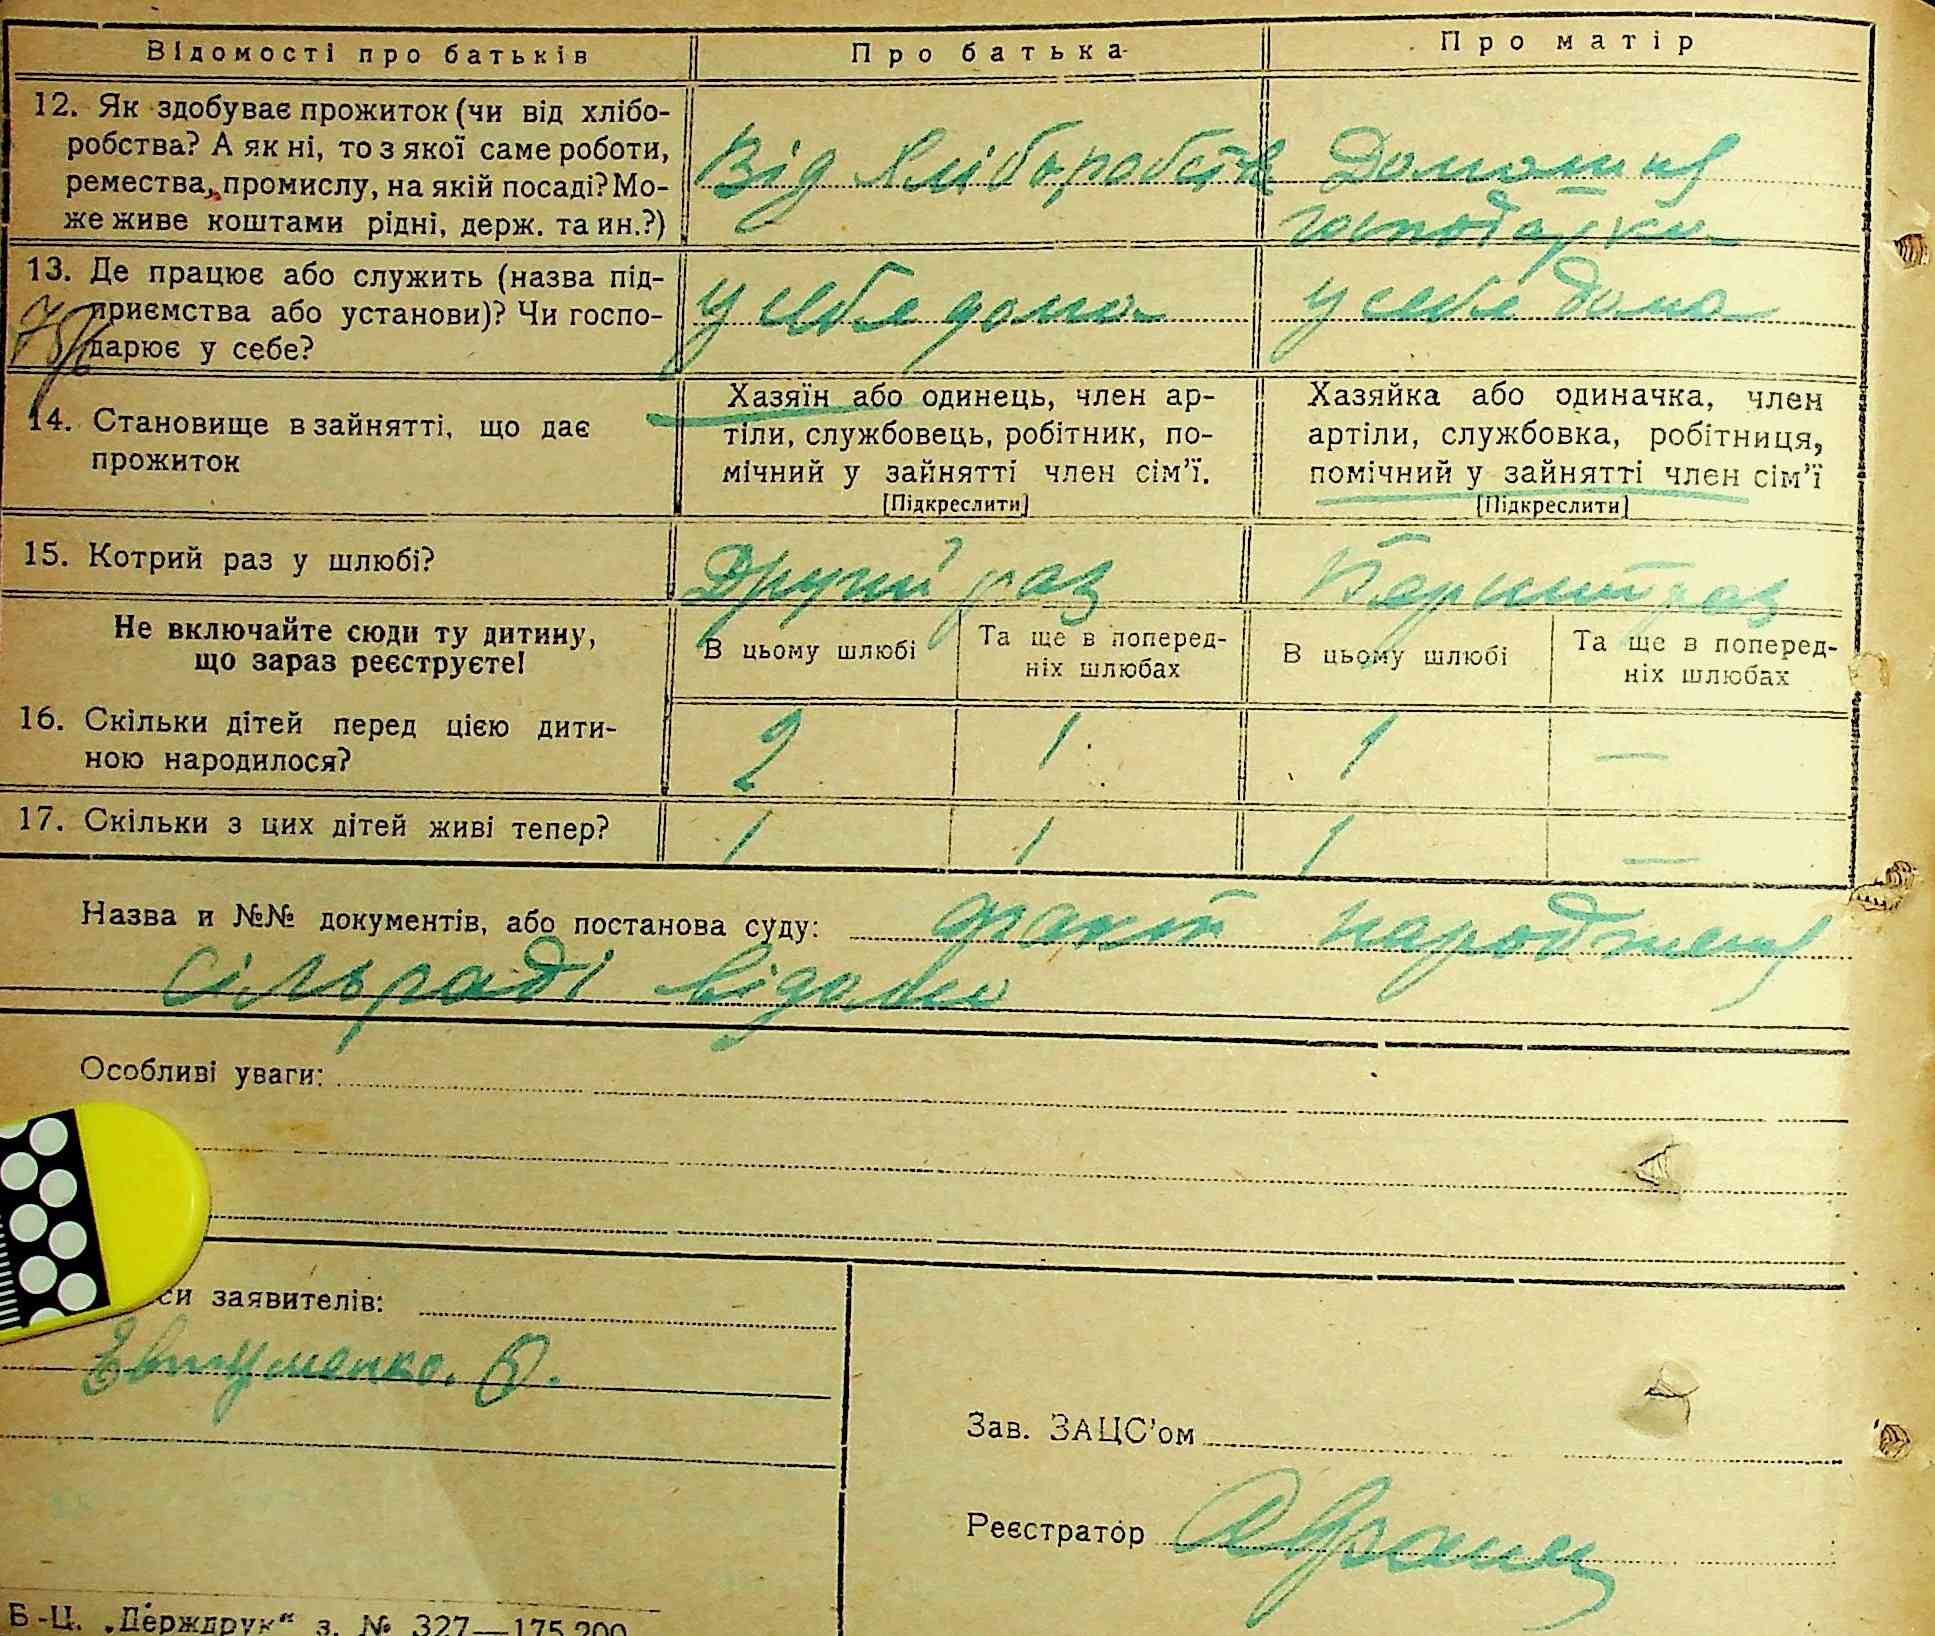 Відомості про батьків
Про батька
Про матір
12. Як здобуває прожиток (чи від хлібо-
робства? А як ні, то з якої саме роботи,
ремества, промислу, на якій посаді? Мо-
же живе коштами рідні, держ. та ин.?)
Від хліборобств
Домашня
господарка
13. Де працює або служить (назва під-
приємства або установи)? Чи госпо-
дарює у себе?
у себе дома
у себе дома
14. Становище в зайнятті, що дає
прожиток
Хазяїн або одинець, член ар-
тіли, службовець, робітник, по-
мічний у зайнятті член сім'ї.
[Підкреслити]
Хазяйка або одиначка, член
артіли, службовка, робітниця,
помічний у зайнятті член сім'ї
[Підкреслити]
15. Котрий раз у шлюбі?
Другий раз
Перший раз
Не включайте сюди ту дитину,
що зараз реєструєте!
В цьому шлюбі
Та ще в поперед-
ніх шлюбах
В цьому шлюбі
Та ще в поперед-
ніх шлюбах
16. Скільки дітей перед цією дити-
ною народилося?
2
1
1
—
17. Скільки з цих дітей живі тепер?
1
1
1
—
Назва и №№ документів, або постанова суду: факт народження
сільраді відомо
Особливі уваги:
си заявителів:
Евтушенко. О.
Зав. ЗАЦС'ом
Реєстратор
Б-Ц. „Держдрук“ з. № 327—175.200